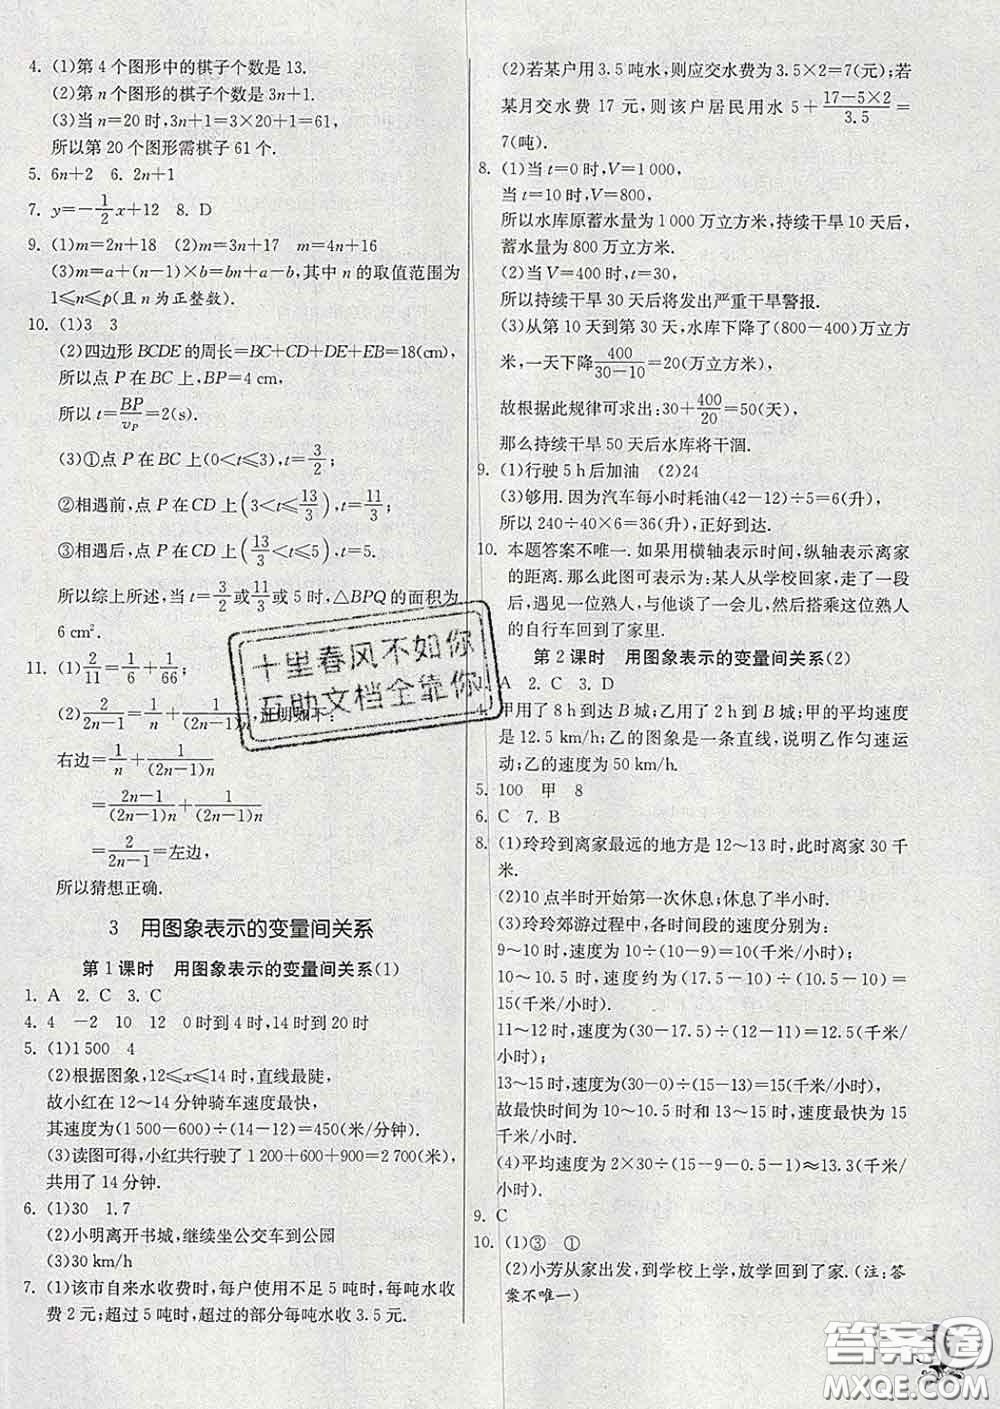 4. (1)第 4 个图形中的棋子个数是 13.
(2)第 n 个图形的棋子个数是 3n+1.
(3)当 n=20 时,3n+1=3×20+1=61,
所以第 20 个图形需棋子 61 个.
5. 6n+2 6. 2n+1
7. y=-1/2x+12 8. D
9. (1)m=2n+18 (2)m=3n+17 m=4n+16
(3)m=a+(n-1)×b=bn+a-b,其中 n 的取值范围为
1≤n≤p(且 n 为正整数).
10. (1)3 3
(2)四边形 BCDE 的周长=BC+CD+DE+EB=18(cm),
所以点 P 在 BC 上,BP=4 cm,
所以 t=BP/vP=2(s).
(3)①点 P 在 BC 上(0<t≤3),t=3/2;
②相遇前,点 P 在 CD 上(3<t≤13/3),t=11/3;
③相遇后,点 P 在 CD 上(13/3<t≤5),t=5.
所以综上所述,当 t=3/2或11/3或 5 时,△BPQ 的面积为
6 cm².
11. (1)2/11=1/6+1/66;
(2)2/(2n-1)=1/n+1/((2n-1)n),证明如下:
右边=1/n+1/((2n-1)n)
=(2n-1)/((2n-1)n)+1/((2n-1)n)
=2/(2n-1)=左边,
所以猜想正确.
3 用图象表示的变量间关系
第 1 课时 用图象表示的变量间关系(1)
1. A 2. C 3. C
4. 4 -2 10 12 0 时到 4 时,14 时到 20 时
5. (1)1 500 4
(2)根据图象,12≤x≤14 时,直线最陡,
故小红在 12~14 分钟骑车速度最快,
其速度为(1 500-600)÷(14-12)=450(米/分钟).
(3)读图可得,小红共行驶了 1 200+600+900=2 700(米),
共用了 14 分钟.
6. (1)30 1.7
(2)小明离开书城,继续坐公交车到公园
(3)30 km/h
7. (1)该市自来水收费时,每户使用不足 5 吨时,每吨水收
费 2 元;超过 5 吨时,超过的部分每吨水收 3.5 元.
(2)若某户用 3.5 吨水,则应交水费为 3.5×2=7(元);若
某月交水费 17 元,则该户居民用水 5+(17-5×2)/3.5=
7(吨).
8. (1)当 t=0 时,V=1 000,
当 t=10 时,V=800,
所以水库原蓄水量为 1 000 万立方米,持续干旱 10 天后,
蓄水量为 800 万立方米.
(2)当 V=400 时,t=30,
所以持续干旱 30 天后将发出严重干旱警报.
(3)从第 10 天到第 30 天,水库下降了(800-400)万立方
米,一天下降400/(30-10)=20(万立方米),
故根据此规律可求出:30+400/20=50(天),
那么持续干旱 50 天后水库将干涸.
9. (1)行驶 5 h后加油 (2)24
(3)够用. 因为汽车每小时耗油(42-12)÷5=6(升),
所以 240÷40×6=36(升),正好到达.
10. 本题答案不唯一. 如果用横轴表示时间,纵轴表示离家
的距离. 那么此图可表示为:某人从学校回家,走了一段
后,遇见一位熟人,与他谈了一会儿,然后搭乘这位熟人
的自行车回到了家里.
第 2 课时 用图象表示的变量间关系(2)
1. A 2. C 3. D
4. 甲用了 8 h到达 B 城;乙用了 2 h到 B 城;甲的平均速度
是 12.5 km/h;乙的图象是一条直线,说明乙作匀速运
动;乙的速度为 50 km/h.
5. 100 甲 8
6. C 7. B
8. (1)玲玲到离家最远的地方是 12~13 时,此时离家 30 千
米.
(2)10 点半时开始第一次休息;休息了半小时.
(3)玲玲郊游过程中,各时间段的速度分别为:
9~10 时,速度为 10÷(10-9)=10(千米/小时);
10~10.5 时,速度约为(17.5-10)÷(10.5-10)=
15(千米/小时).
11~12 时,速度为(30-17.5)÷(12-11)=12.5(千米/
小时);
13~15 时,速度为(30-0)÷(15-13)=15(千米/小时),
故最快时间为 10~10.5 时和 13~15 时,最快速度为 15
千米/小时.
(4)平均速度为 2×30÷(15-9-0.5-1)≈13.3(千米/
小时).
9. C
10. (1)③ ①
(2)小芳从家出发,到学校上学,放学回到了家.(注:答
案不唯一)
十里春风不如你
互助文档全靠你
答案圈
MXQE.COM